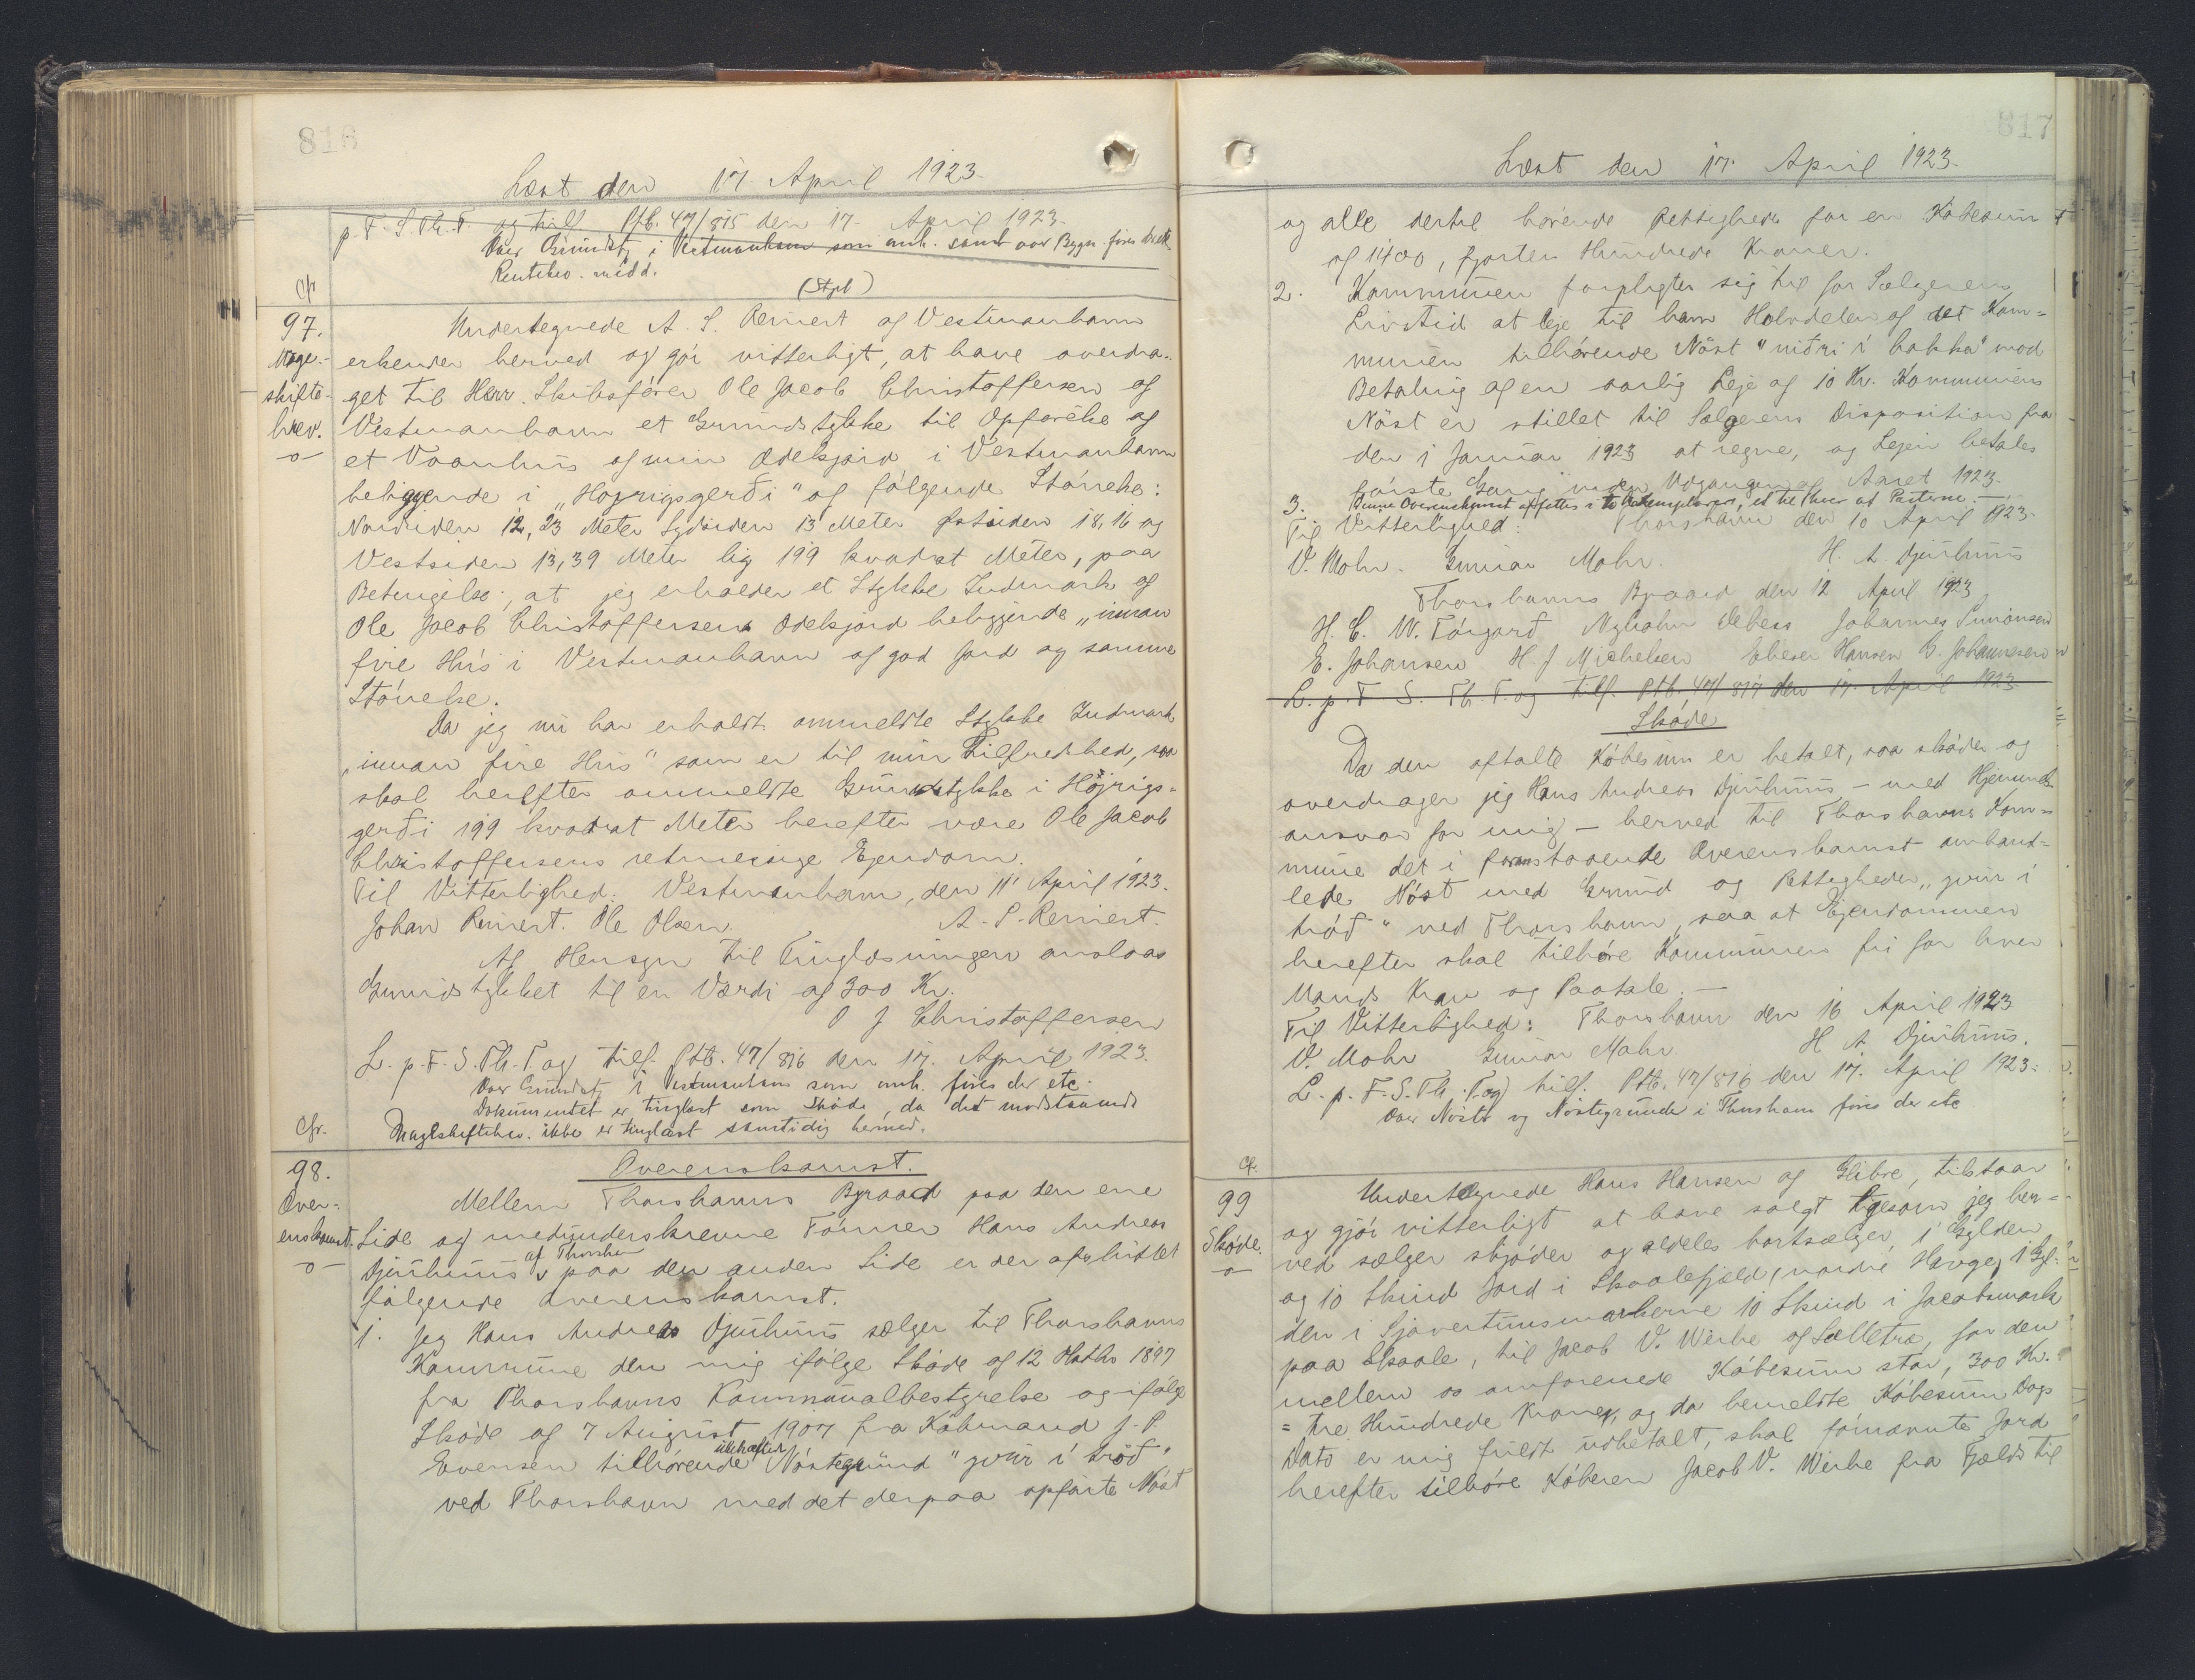 816
Læst den 17. April 1923.
p. F. S. Th. T. og tilf. Ptb. 47/815 den 17. April 1923.
Over Grundst. i Vestmanhavn som anh. samt over Bygn. føres
Renteko. midd.
(Stpl)
Cfr
97.
Mage-
skifte-
brev.
-o-
Undertegnede A. S. Reinert af Vestmanhavn
erkender herved og gör vitterligt, at have overdra-
get til Herr. Skibsförer Ole Jacob Christoffersen af
Vestmanhavn et Grundstykke til Opförelse af
et Vaanhus af min Odelsjord i Vestmanhavn
beliggende i „Hojrigsgerði" af fölgende Störrelse:
Nordsiden 12,23 Meter Sydsiden 13 Meter Östsiden 18,16 og
Vestsiden 13,39 Meter lig 199 kvadrat Meter, paa
Betingelse, at jeg erholder et Stykke Indmark af
Ole Jacob Christoffersens Odelsjord beliggende „innan
fire Hús i Vestmanhavn af god Jord og samme
Störrelse.
Da jeg nu har erholdt ommeldte Stykke Indmark
„innan fire Hus" som er til min Tilfredshed, saa
skal herefter ommeldte Grundstykke i Höjrigs-
gerði 199 kvadrat Meter herefter være Ole Jacob
Christoffersens retmæssige Ejendom.
Til Vitterlighed: Vestmanhavn, den 11' April 1923.
Johan Reinert. Ole Olsen. A. S. Reinert.
Af Hensyn til Tinglæsningen anslaas
Grundstykket til en Værdi af 300 Kr.
O J Christoffersen
L. p. F. S. Th. T og tilf. Ptb. 47/816 den 17. April 1923.
Over Grundst. i Vestmanhavn som anh. föres der etc.
Dokumentet er tinglæst som Sköde, da det modstaaende
Mageskiftebrev. ikke er tinglæst samtidig hermed.
Cfr.
98.
Over-
enskomst.
-o-
Overenskomst.
Mellem Thorshavns Byraad paa den ene
Side og medunderskrevne Tömrer Hans Andreas
af Thorshavn
Djurhuus paa den anden Side er der afsluttet
fölgende Overenskomst.
1. Jeg Hans Andreas Djurhuus sælger til Thorshavns
Kommune den mig ifölge Sköde af 12 Oktbr 1897
fra Thorshavns Kommunalbestyrelse og ifölge
Sköde af 7 August 1907 fra Köbmand J. P.
Evensen tilhörende Nöstegrund "yvir í tröð"
ved Thorshavn med det derpaa opförte Nöst
817
Læst den 17. April 1923.
og alle dertil hörende Rettigheder for en Köbesum
af 1400, fjorten Hundrede Kroner.
2. Kommunen forpligter sig til for Sælgerens
Livstid at leje til ham Halvdelen af det Kom-
munen tilhörende Nöst "niðri í bakka" mod
Betaling af en aarlig Leje af 10 Kr. Kommunens
Nöst er stillet til Sælgerens Disposition fra
den 1 Januar 1923 at regne, og Lejen betales
förste Gang inden Udgangen af Aaret 1923.
3. Denne Overenskomst affattes i to Exemplarer, et til hver af Parterne.
Til Vitterlighed: Thorshavn den 10 April 1923.
V. Mohr. Gunnar Mohr. H. A. Djurhuus
Thorshavns Byraad den 12 April 1923
H. C. W. Tórgarð Debess Johannes Simonsen
E. Johansen H. J Michelsen Elieser Hansen G. Johannesen
L. p. F S. Th. T. og tilf. Ptb. 47/817 den 17. April 1923
Sköde
Da den aftalte Köbesum er betalt, saa sköder og
overdrager jeg Hans Andreas Djurhuus – med Hjemmels-
ansvar for mig – herved til Thorshavns Kom-
mune det i foranstaaende Overenskomst omhand-
lede Nöst med Grund og Rettigheder „yvir í
tröð" ved Thorshavn, saa at Ejendommen
herefter skal tilhöre Kommunen fri for hver
Mands Krav og Paatale. –
Til Vitterlighed: Thorshavn den 16 April 1923
V. Mohr Gunnar Mohr. H A Djurhuus.
L. p. F. S. Th. T. og tilf. Ptb. 47/816 den 17. April 1923.
Over Nöst og Nöstegrunde i Thorshavn föres der etc
Cfr.
99
Sköde.
-o-
Undertegnede Hans Hansen af Glibre, tilstaar
og gjör vitterligt at have solgt ligesom jeg her-
ved sælger skjöder og aldeles bortsælger, 1 Gylden
og 10 Skind Jord i Skaalefjeld (nordre Hauge, 1 Gyl-
den i Sjovertunsmarkerne 10 Skind i Jacobsmark
paa Skaale, til Jacob V. Weihe af Selletræ, for den
mellem os omforenede Köbesum stor, 300 Kr.
= tre Hundrede Kroner, og da bemeldte Köbesum Dags
Dato er mig fuldt udbetalt, skal fornævnte Jord
herefter tilhöre Köberen Jacob V. Weihe fra Fjeld til